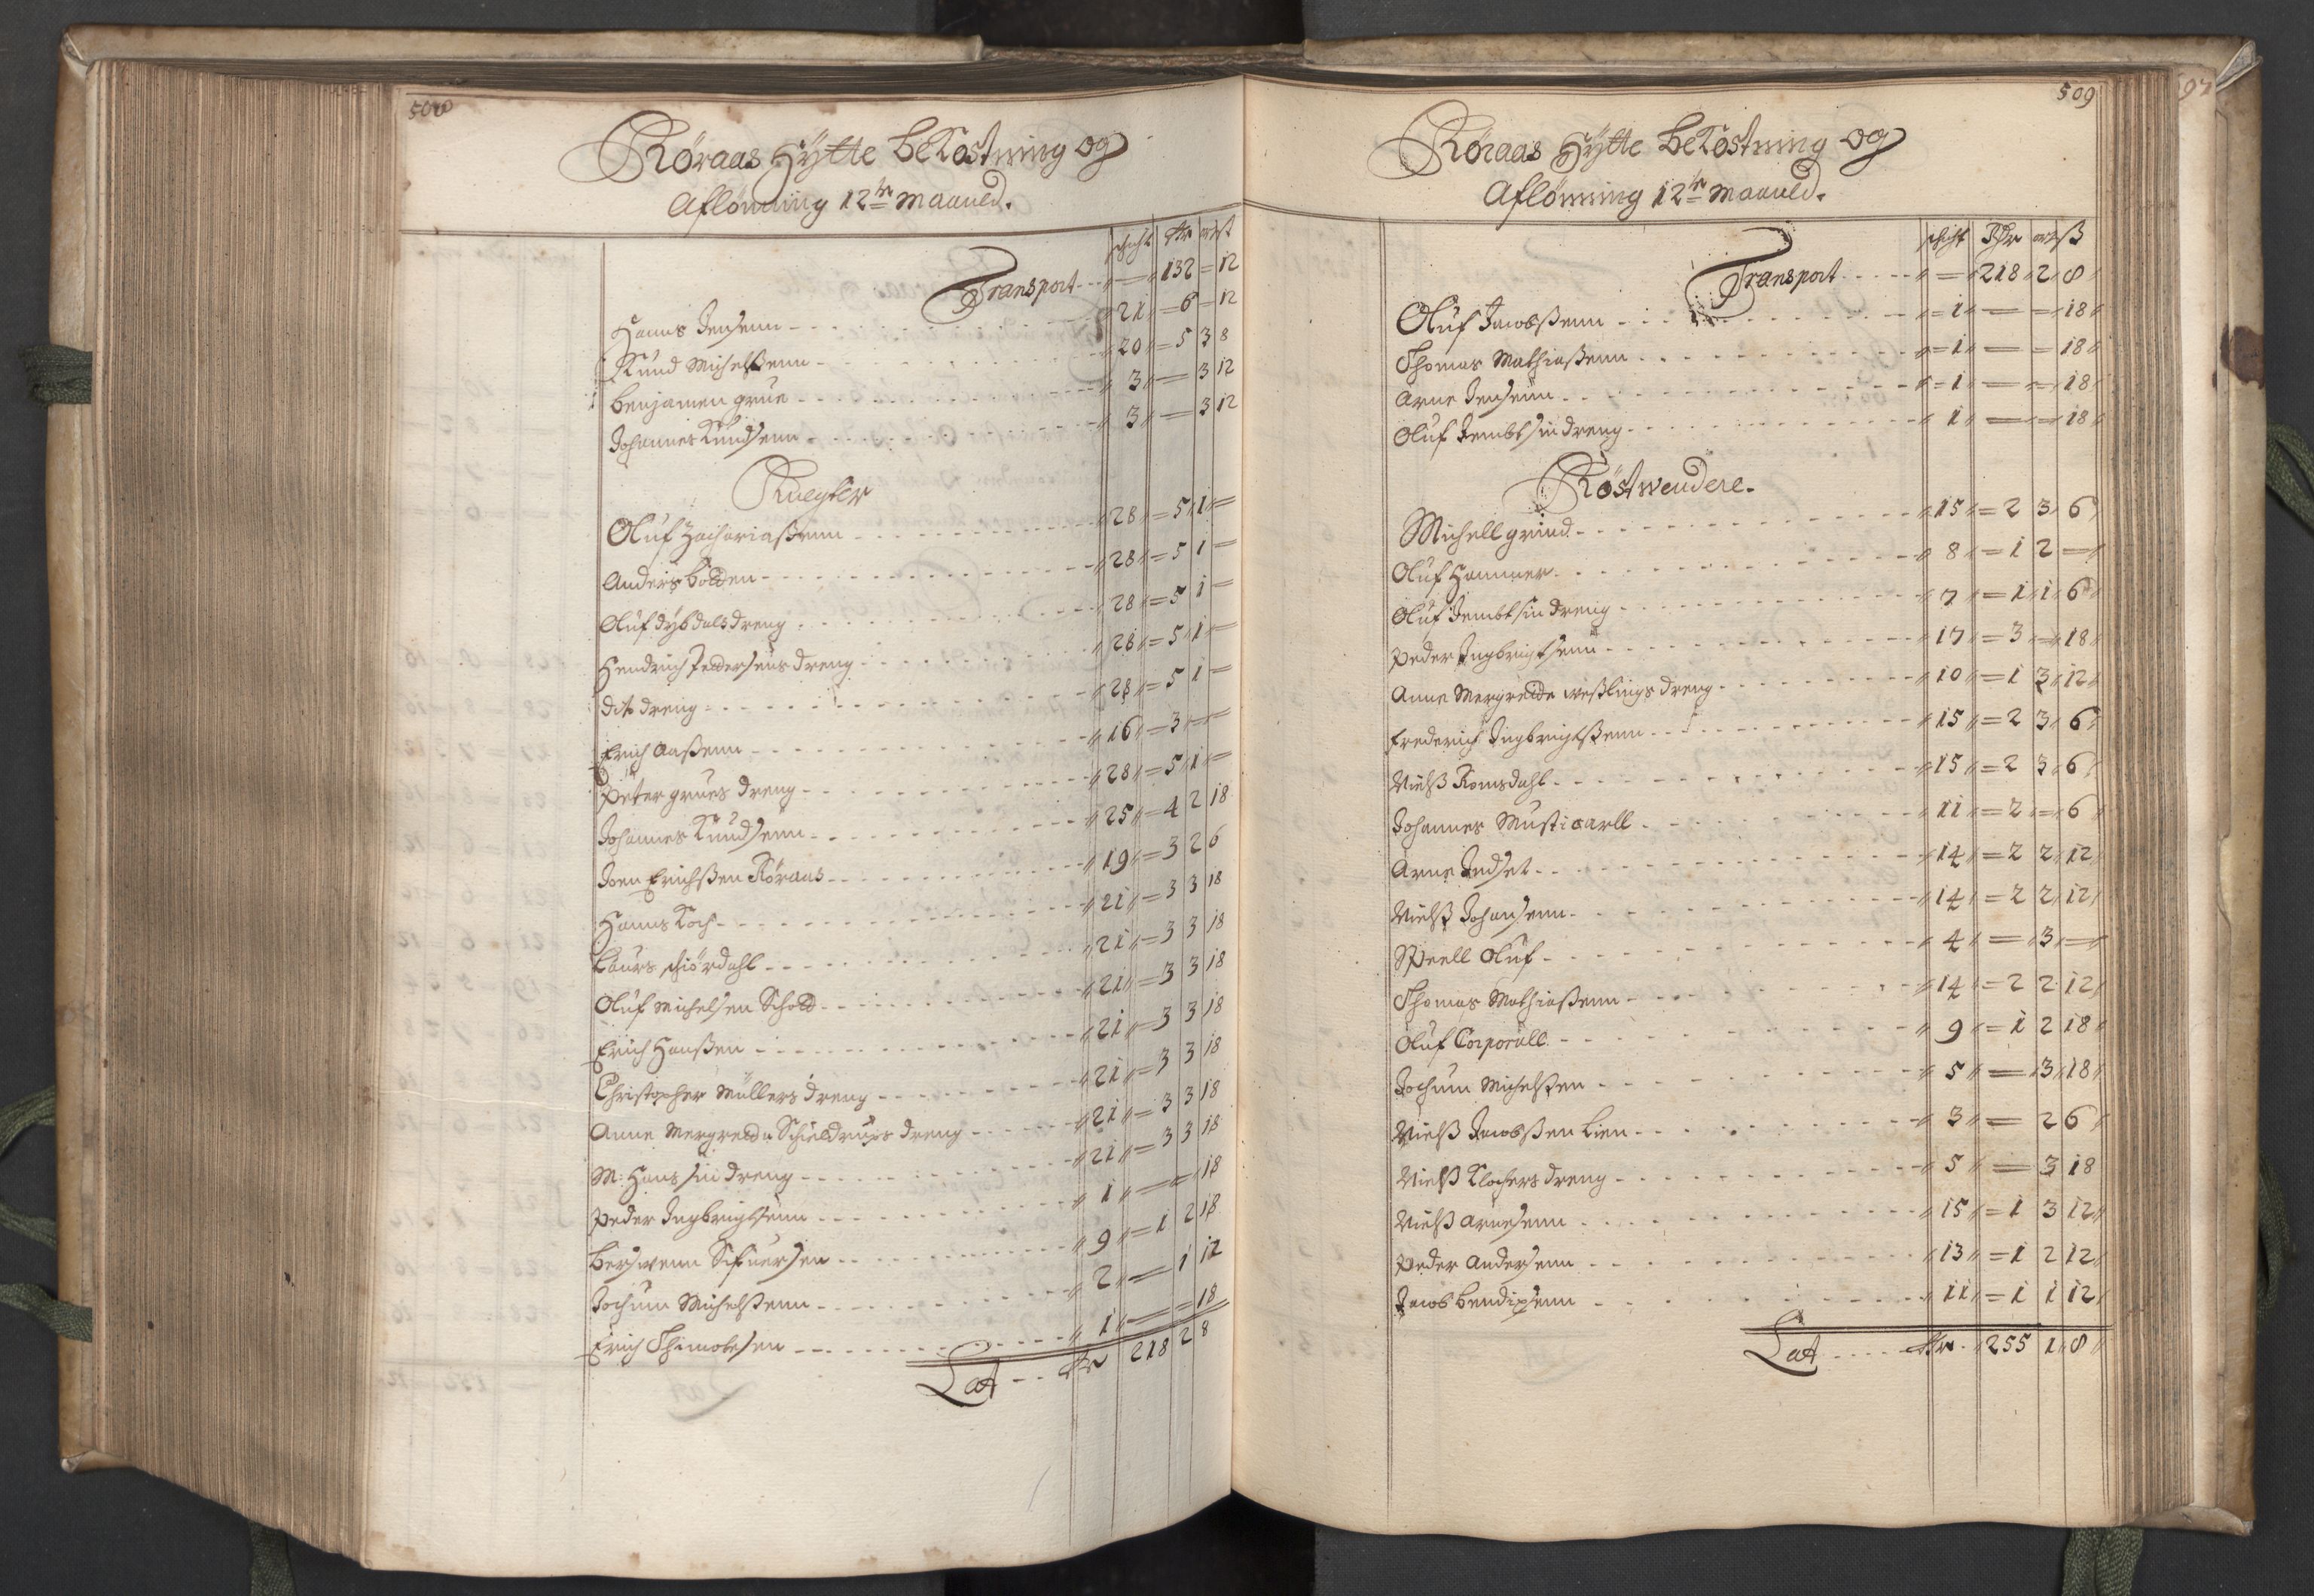 508
Røraas Hÿtte beKostning og
Aflønning 12te Maaned.
schicht Rdr ort ß
Transport - - - 132 = 12
Hanns Jensenn - - - 21 = 6 = 12
Knud Michelßenn - - - 20 = 5 3 8
Benjamen grue - - - 3 = 3 12
Johannes Knudsenn - - - 3 = 3 12
Knegter
Oluf Zachariaßenn - - - 28 = 5 1 =
Anders bolden - - - 28 = 5 1 =
Oluf dybdals dreng - - - 28 = 5 1 =
Hendrich Pedersens dreng - - - 28 = 5 1 =
dito dreng - - - 28 = 5 1 =
Erich Aaßenn - - - 16 = 3 = =
Peter grues dreng - - - 28 = 5 1 =
Johannes Knudsenn - - - 25 = 4 2 18
Joen Erichßen Røraas - - - 19 = 3 2 6
Hanns Koch - - - 21 = 3 3 18
Laurs schiørdahl - - - 21 = 3 3 18
Oluf Michelsen Schold - - - 21 = 3 3 18
Erich Hanßen - - - 21 = 3 3 18
Christopher Müllers dreng - - - 21 = 3 3 18
Anne Mergrede Schieldrups dreng - - - 21 = 3 3 18
M: Hans sin dreng - - - 21 = 3 3 18
Peder Ingbrigtsenn - - - 1 = = 18
Berswenn Sifuersen - - - 9 = 1 2 18
Jochum Michelßenn - - - 2 = 1 12
Erich Thimotesen - - - 1 = = 18
Lat - - Rdr 218 2 8
509
Røraas Hÿtte beKostning og
Aflønning 12te Maaned.
schicht Rdr ort ß
Transport - - - 218 2 8
Oluf Jacobßenn - - - 1 = = 18
Thomas Mathiaßenn - - - 1 = = 18
Arne Jensenn - - - 1 = = 18
Oluf Jembt sin dreng - - - 1 = = 18
Røstwendere.
Michell grind - - - 15 = 2 3 6
Oluf Hammer - - - 8 = 1 2 =
Oluf Jembt sin dreng - - - 7 = 1 1 6
Peder Ingbrigtsenn - - - 17 = 3 = 18
Anne Mergrede weßlings dreng - - - 10 = 1 3 12
Frederich Ingbrigtßenn - - - 15 = 2 3 6
Nielß Romsdahl - - - 15 = 2 3 6
Johannes Musticarll - - - 11 = 2 = 6
Arne Indset - - - 14 = 2 2 12
Nielß Johansenn - - - 14 = 2 2 12
Spell Oluf - - - 4 = 3 =
Thomas Mathiaßenn - - - 14 = 2 2 12
Oluf Corporall - - - 9 = 1 2 18
Jochum Michelßen - - - 5 = 3 18
Nielß Jacobßen Lien - - - 3 = 2 6
Nielß Klochers dreng - - - 5 = 3 18
Nielß Arnesenn - - - 15 = 1 3 12
Peder Andersenn - - - 13 = 1 2 12
Jacob Bendixsenn - - - 11 = 1 1 12
Lat - - - Rdr 255 1 8